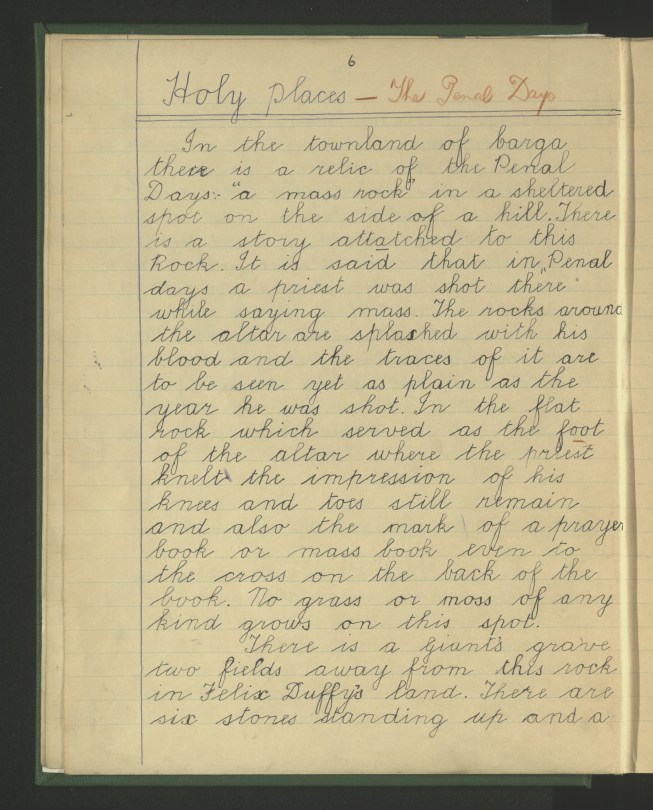 6
Holy places — The Penal Days
In the townland of barga
there is a relic of the Penal
Days:- "a mass rock" in a sheltered
spot on the side of a hill. There
is a story attatched to this
Rock. It is said that in "Penal
days a priest was shot there"
while saying mass. The rocks around
the altar are splashed with his
blood and the traces of it are
to be seen yet as plain as the
year he was shot. In the flat
rock which served as the foot
of the altar where the priest
knelt the impression of his
knees and toes still remain
and also the mark of a prayer
book or mass book even to
the cross on the back of the
book. No grass or moss of any
kind grows on this spot.
There is a giant's grave
two fields away from this rock
in Felix Duffy's land. There are
six stones standing up and a